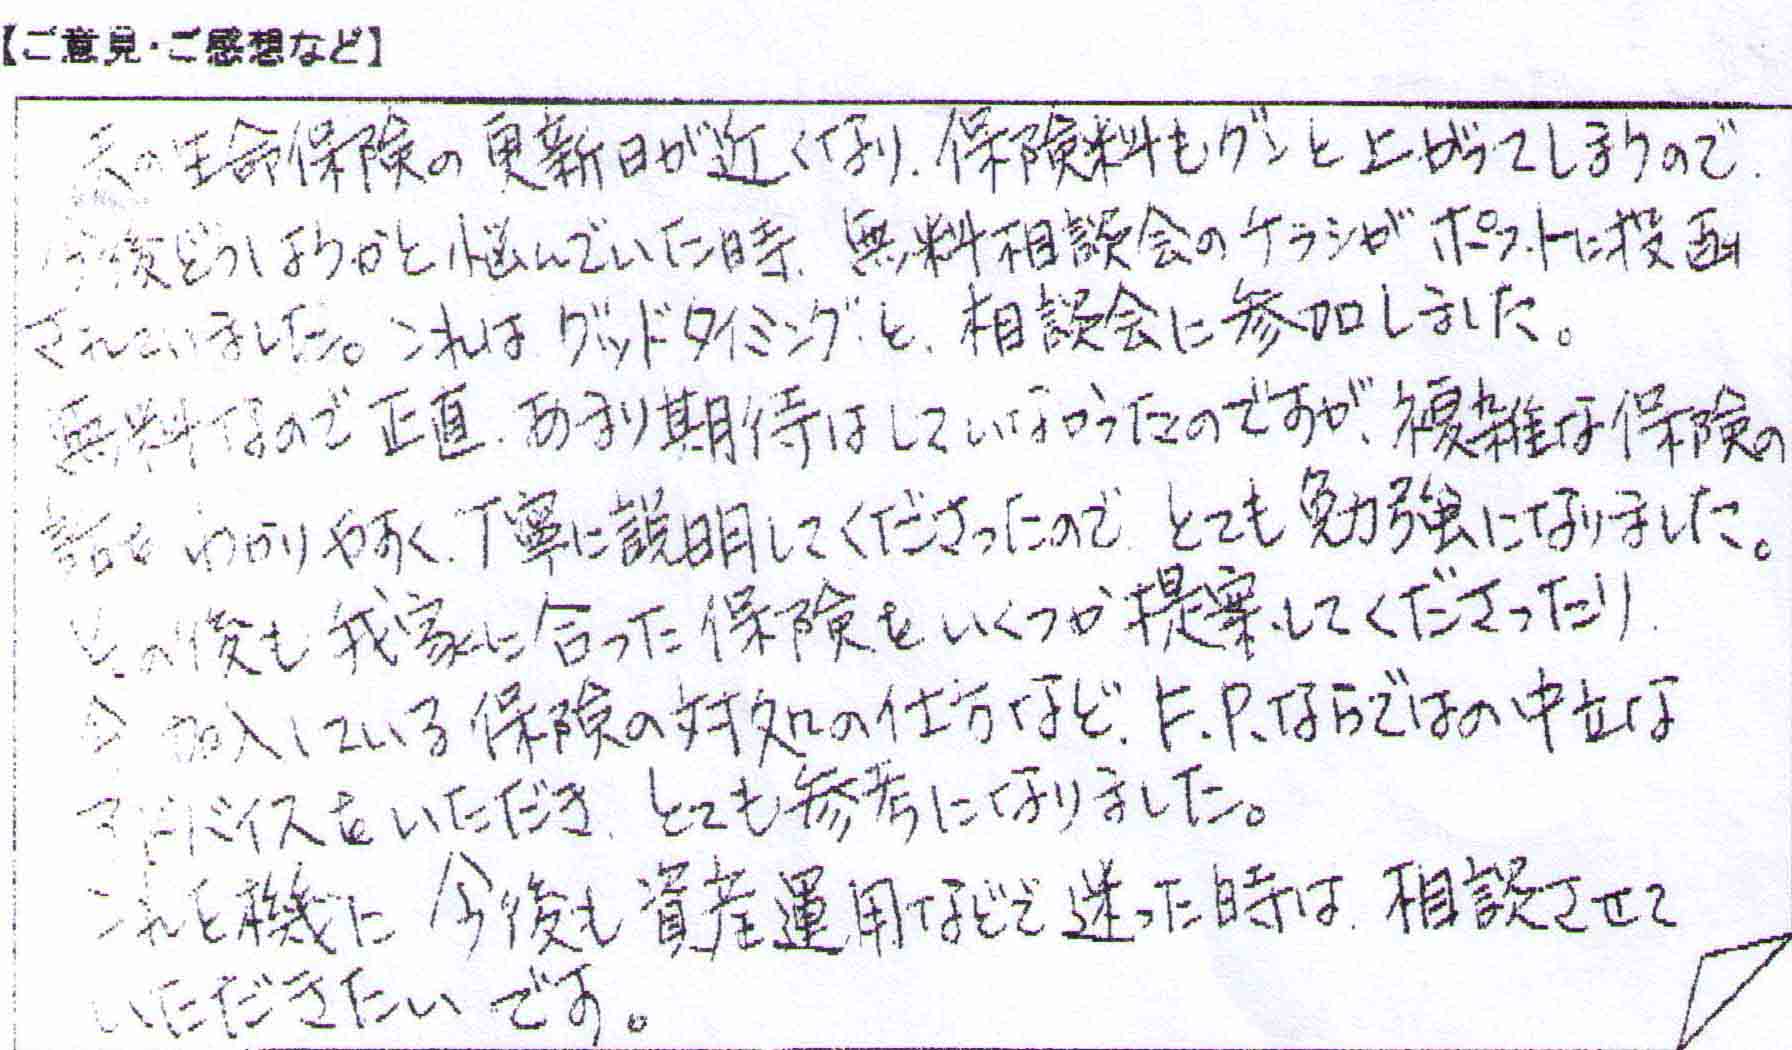 【ご意見・ご感想など】
夫の生命保険の更新日が近くなり、保険料もグンと上がってしまうので、
今後どうしようかと悩んでいた時、無料相談会のチラシがポストに投函
されていました。これはグッドタイミングと、相談会に参加しました。
無料なので正直、あまり期待はしていなかったのですが、複雑な保険の
話をわかりやすく、丁寧に説明してくださったので、とても勉強になりました。
その後も我家に合った保険をいくつか提案してくださったり、
今加入している保険の対処の仕方など、F.P.ならではの中立な
アドバイスをいただき、とても参考になりました。
これを機に今後も資産運用などで迷った時は、相談させて
いただきたいです。